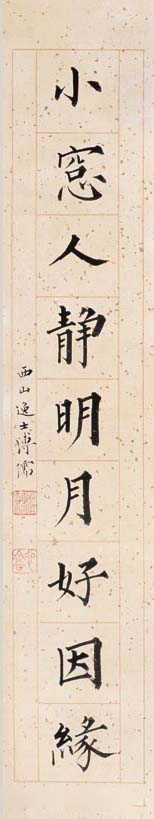 小窓人静明月好因緣
西山逸士溥儒